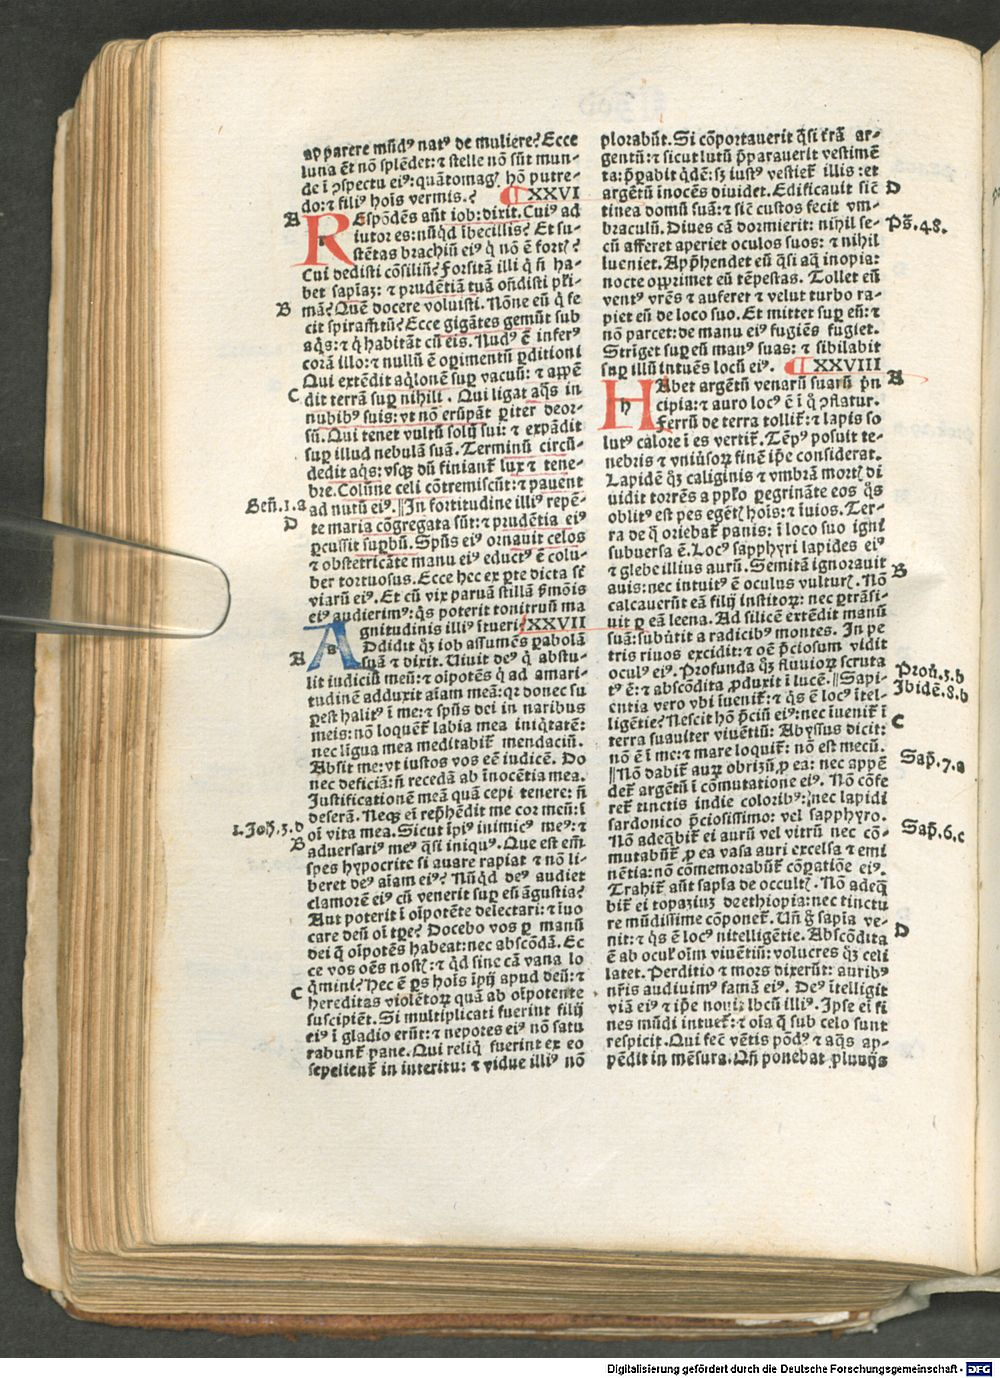 apparere mūdꝰ natꝰ de muliere? Ecce
luna ēt nō splēdet: ⁊ stelle nō sūt mun-
de ī ↄspectu eiꝰ: quātomagꝭ hō putre-
do: ⁊ filiꝰ hoīs vermis.?
¶ XXVI
A
REspōdēs aūt iob: dixit. Cuiꝰ ad
iutor es: nūqd ībecillis? Et su-
stētas brachiū eiꝰ q̄ nō ē fortꝭ?
Cui dedisti cōsiliū? Forsitā illi q̄ ñ ha-
bet sapīaꝫ: ⁊ prudētiā tuā oñdisti pl̄i-
B
mā? Quē docere voluisti. Nōne eū q̄ fe
cit spiramētū? Ecce gigātes gemūt sub
aq̄s: ⁊ q̄ habitāt cū eis. Nudꝰ ē inferꝰ
corā illo: ⁊ nullū ē oꝑimentū ꝑditioni
Qui extēdit aq̄lonē suꝑ vacuū: ⁊ appē
C
dit terrā suꝑ nihili. Qui ligat aq̄s in
nubibꝰ suis: vt nō erūpāt ꝑiter deor-
sū. Qui tenet vultū solij sui: ⁊ expādit
suꝑ illud nebulā suā. Terminū circū-
dedit aq̄s: vsqꝫ dū finianť lux ⁊ tene-
bre. Colūne celi cōtremiscūt: ⁊ pauent
Geñ.1.a
ad nutū eiꝰ. ‖ In fortitudine illiꝰ repē-
D
te maria cōgregata sūt: ⁊ prudētia eiꝰ
ꝑcussit suꝑbū. Spūs eiꝰ ornauit celos
⁊ obstetricāte manu eiꝰ eductꝰ ē colu-
ber tortuosus. Ecce hec ex ꝑte dicta sē
viarū eiꝰ. Et cū vix paruā stillā ẜmōis
eiꝰ audierimꝰ: q̄s poterit tonitruū ma
gnitudinis illiꝰ ītueri?
XXVII
A
ADdidit qꝫ iob assumēs ꝑabolā
suā ⁊ dixit. Uiuit deꝰ q̄ abstu-
lit iudiciū meū: ⁊ oīpotēs q̄ ad amari-
tudinē adduxit aīam meā: qꝛ donec su
ꝑest halitꝰ ī me: ⁊ spūs dei in naribus
meis: nō loquenť labia mea iniq̄tatē:
nec līgua mea meditabiť mendaciū.
Absit me: vt iustos vos eē iudicē. Do
nec deficiā: ñ recedā ab īnocētia mea.
Justificationē meā quā cepi tenere: ñ
deserā. Neqꝫ eī rep̄hēdit me cor meū: ī
1.Joh.3.d
oī vita mea. Sicut īpiꝰ inimicꝰ meꝰ: ⁊
B
aduersariꝰ meꝰ q̄si iniquꝰ. Que est em̄
spes hypocrite si auare rapiat ⁊ nō li-
beret deꝰ aīam eiꝰ? Nūqd deꝰ audiet
clamorē eiꝰ cū venerit suꝑ eū āgustia?
Aut poterit ī oīpotēte delectari: ⁊ īuo
care deū oī tꝑe? Docebo vos ꝑ manū
dei q̄ oīpotēs habeat: nec abscōdā. Ec
ce vos oēs nostꝭ: ⁊ qd sine cā vana lo
q̄mini? Hec ē ꝑs hoīs īpij apud deū: ⁊
C
hereditas violētoꝝ quā ab oīpotente
suscipiēt. Si multiplicati fuerint filij
eiꝰ ī gladio erūt: ⁊ nepotes eiꝰ nō satu
rabunť pane. Qui reliq̄ fuerint ex eo
sepelienť in interitu: ⁊ vidue illiꝰ nō
plorabūt. Si cōportauerit q̄si ťrā ar-
gentū: ⁊ sicut lutū p̄parauerit vestimē
ta: p̄ꝑabit qdē: sꝫ iustꝰ vestieť illis: et
argētū inocēs diuidet. Edificauit sic̄
D
tinea domū suā: ⁊ sic̄ custos fecit vm-
braculū. Diues cā dormierit: nihil se-
Ps̄.48.
cū afferet aperiet oculos suos: ⁊ nihil
īueniet. App̄hendet eū q̄si aq̄ inopia:
nocte opprimet eū tēpestas. Tollet eū
ventꝰ vrēs ⁊ auferet ⁊ velut turbo ra-
piet eū de loco suo. Et mittet suꝑ eū: ⁊
nō parcet: de manu eiꝰ fugiēs fugiet.
Strīget suꝑ eū manꝰ suas: ⁊ sibilabit
suꝑ illū intuēs locū eiꝰ.
¶ XXVIII
A
HAbet argētū venarū suarū p̄n
cipia: ⁊ auro locꝰ ē ī q̄ ↄflatur.
Ferrū de terra tolliť: ⁊ lapis so
lutꝰ calore ī es vertiť. Tēpꝰ posuit te-
nebris ⁊ vniuersoꝝ finē ip̄e considerat.
Lapidē qꝫ caliginis ⁊ vmbrā mortꝭ di
uidit torrēs a pplo ꝑegrināte eos q̄s
oblitꝰ est pes egētꝭ hoīs: ⁊ īuios. Ter-
ra de q̄ oriebať panis: ī loco suo igni
subuersa ē. Locꝰ sapphyri lapides eiꝰ
⁊ glebe illius aurū. Semitā ignorauit
B
auis: nec intuitꝰ ē oculus vulturꝭ. Nō
calcauerūt eā filij institoꝝ: nec ꝑtrāsi-
uit ꝑ eā leena. Ad silicē extēdit manū
suā: subūtit a radicibꝰ montes. In pe
tris riuos excidit: ⁊ oē p̄ciosum vidit
oculꝰ eiꝰ. Profunda qꝫ fluuioꝝ scruta
Prou̇.3.b
tꝰ ē: ⁊ abscōdita ꝓduxit ī lucē. ‖ Sapi-
Ibidē.8.b
entia vero vbi īuenīť: ⁊ q̄s ē locꝰ ītel-
C
ligētie? Nescit hō p̄ciū eiꝰ: nec īueniť ī
terra suauiter viuētiū: Abyssus dicit:
nō ē ī me: ⁊ mare loquiť: nō est mecū.
Sap̄.7.a
‖ Nō dabiť auꝝ obrizū ꝓ ea: nec appē
deť argētū ī cōmutatione eiꝰ. Nō cōfe
reť tinctis indie coloribꝰ: nec lapidi
sardonico p̄ciosissimo: vel sapphyro.
Sap̄.6.c
Nō adeq̄biť ei aurū vel vitrū nec cō-
mutabūť ꝓ ea vasa auri excelsa ⁊ emi
nētia: nō cōmemorabūť cōꝑatiōe eiꝰ.
Trahiť aūt sapīa de occultꝭ. Nō adeq̄
biť ei topaziuꝫ de ethiopia: nec tinctu
re mūdissime cōponeť. Uñ g̊ sapīa ve-
D
nit: ⁊ q̄s ē locꝰ nitelligētie. Abscōdita
ē ab oculꝭ oīm viuētiū: volucres qꝫ celi
latet. Perditio ⁊ mors dixerūt: auribꝰ
nr̄is audiuimꝰ famā eiꝰ. Deꝰ ītelligit
viā eiꝰ ⁊ ip̄e nouit locū illiꝰ. Ipse eī fi
nes mūdi intueť: ⁊ oīa q̄ sub celo sunt
respicit. Qui fec̄ vētis pōdꝰ ⁊ aq̄s ap-
pēdit in mēsura. Qñ ponebat pluuijs
Digitalisierung gefördert durch die Deutsche Forschungsgemeinschaft - DFG